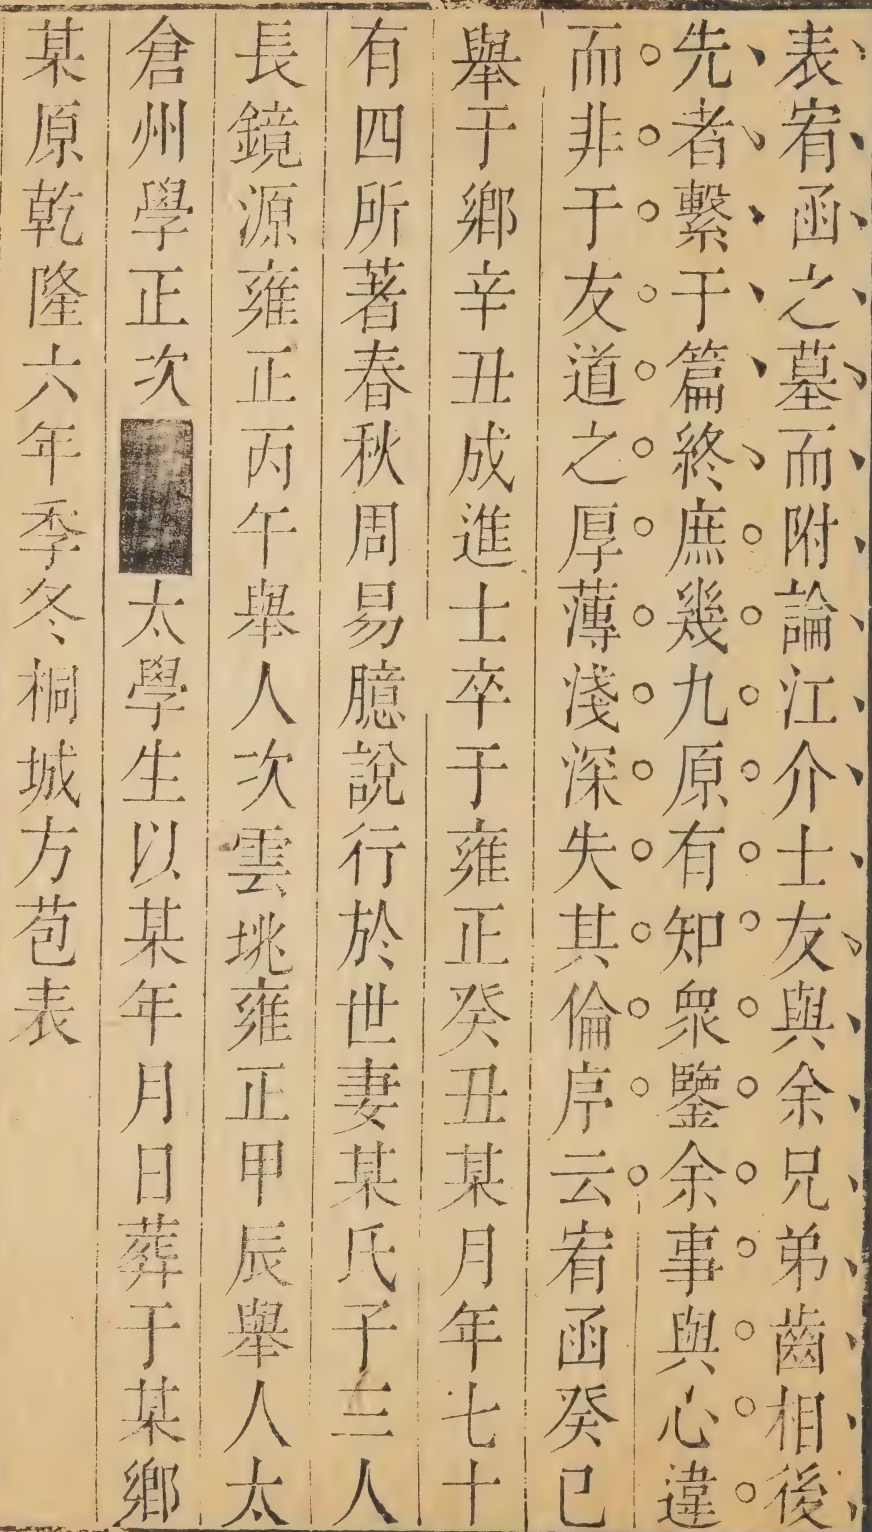 表宥函之墓而附論江介士友與余兄弟齒相後
先者繫于篇終庶幾九原有知衆鑒余事與心違
而非于友道之厚薄淺深失其倫序云宥函癸巳
舉于鄉辛丑成進士卒于雍正癸丑某月年七十
有四所著春秋周易臆說行於世妻某氏子三人
長鏡源雍正丙午舉人次雲姚雍正甲辰舉人太
倉州學正次太學生以某年月日葬于某鄉
某原乾隆六年季冬桐城方苞表